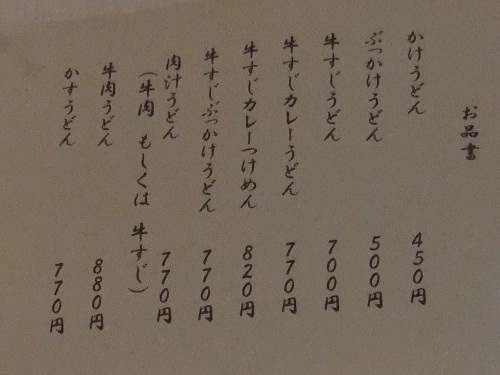 お品書
かけうどん 450円
ぶっかけうどん 500円
牛すじうどん 700円
牛すじカレーうどん 770円
牛すじカレーつけめん 820円
牛すじぶっかけうどん 770円
肉汁うどん 770円
(牛肉 もしくは 牛すじ)
牛肉うどん 880円
かすうどん 770円